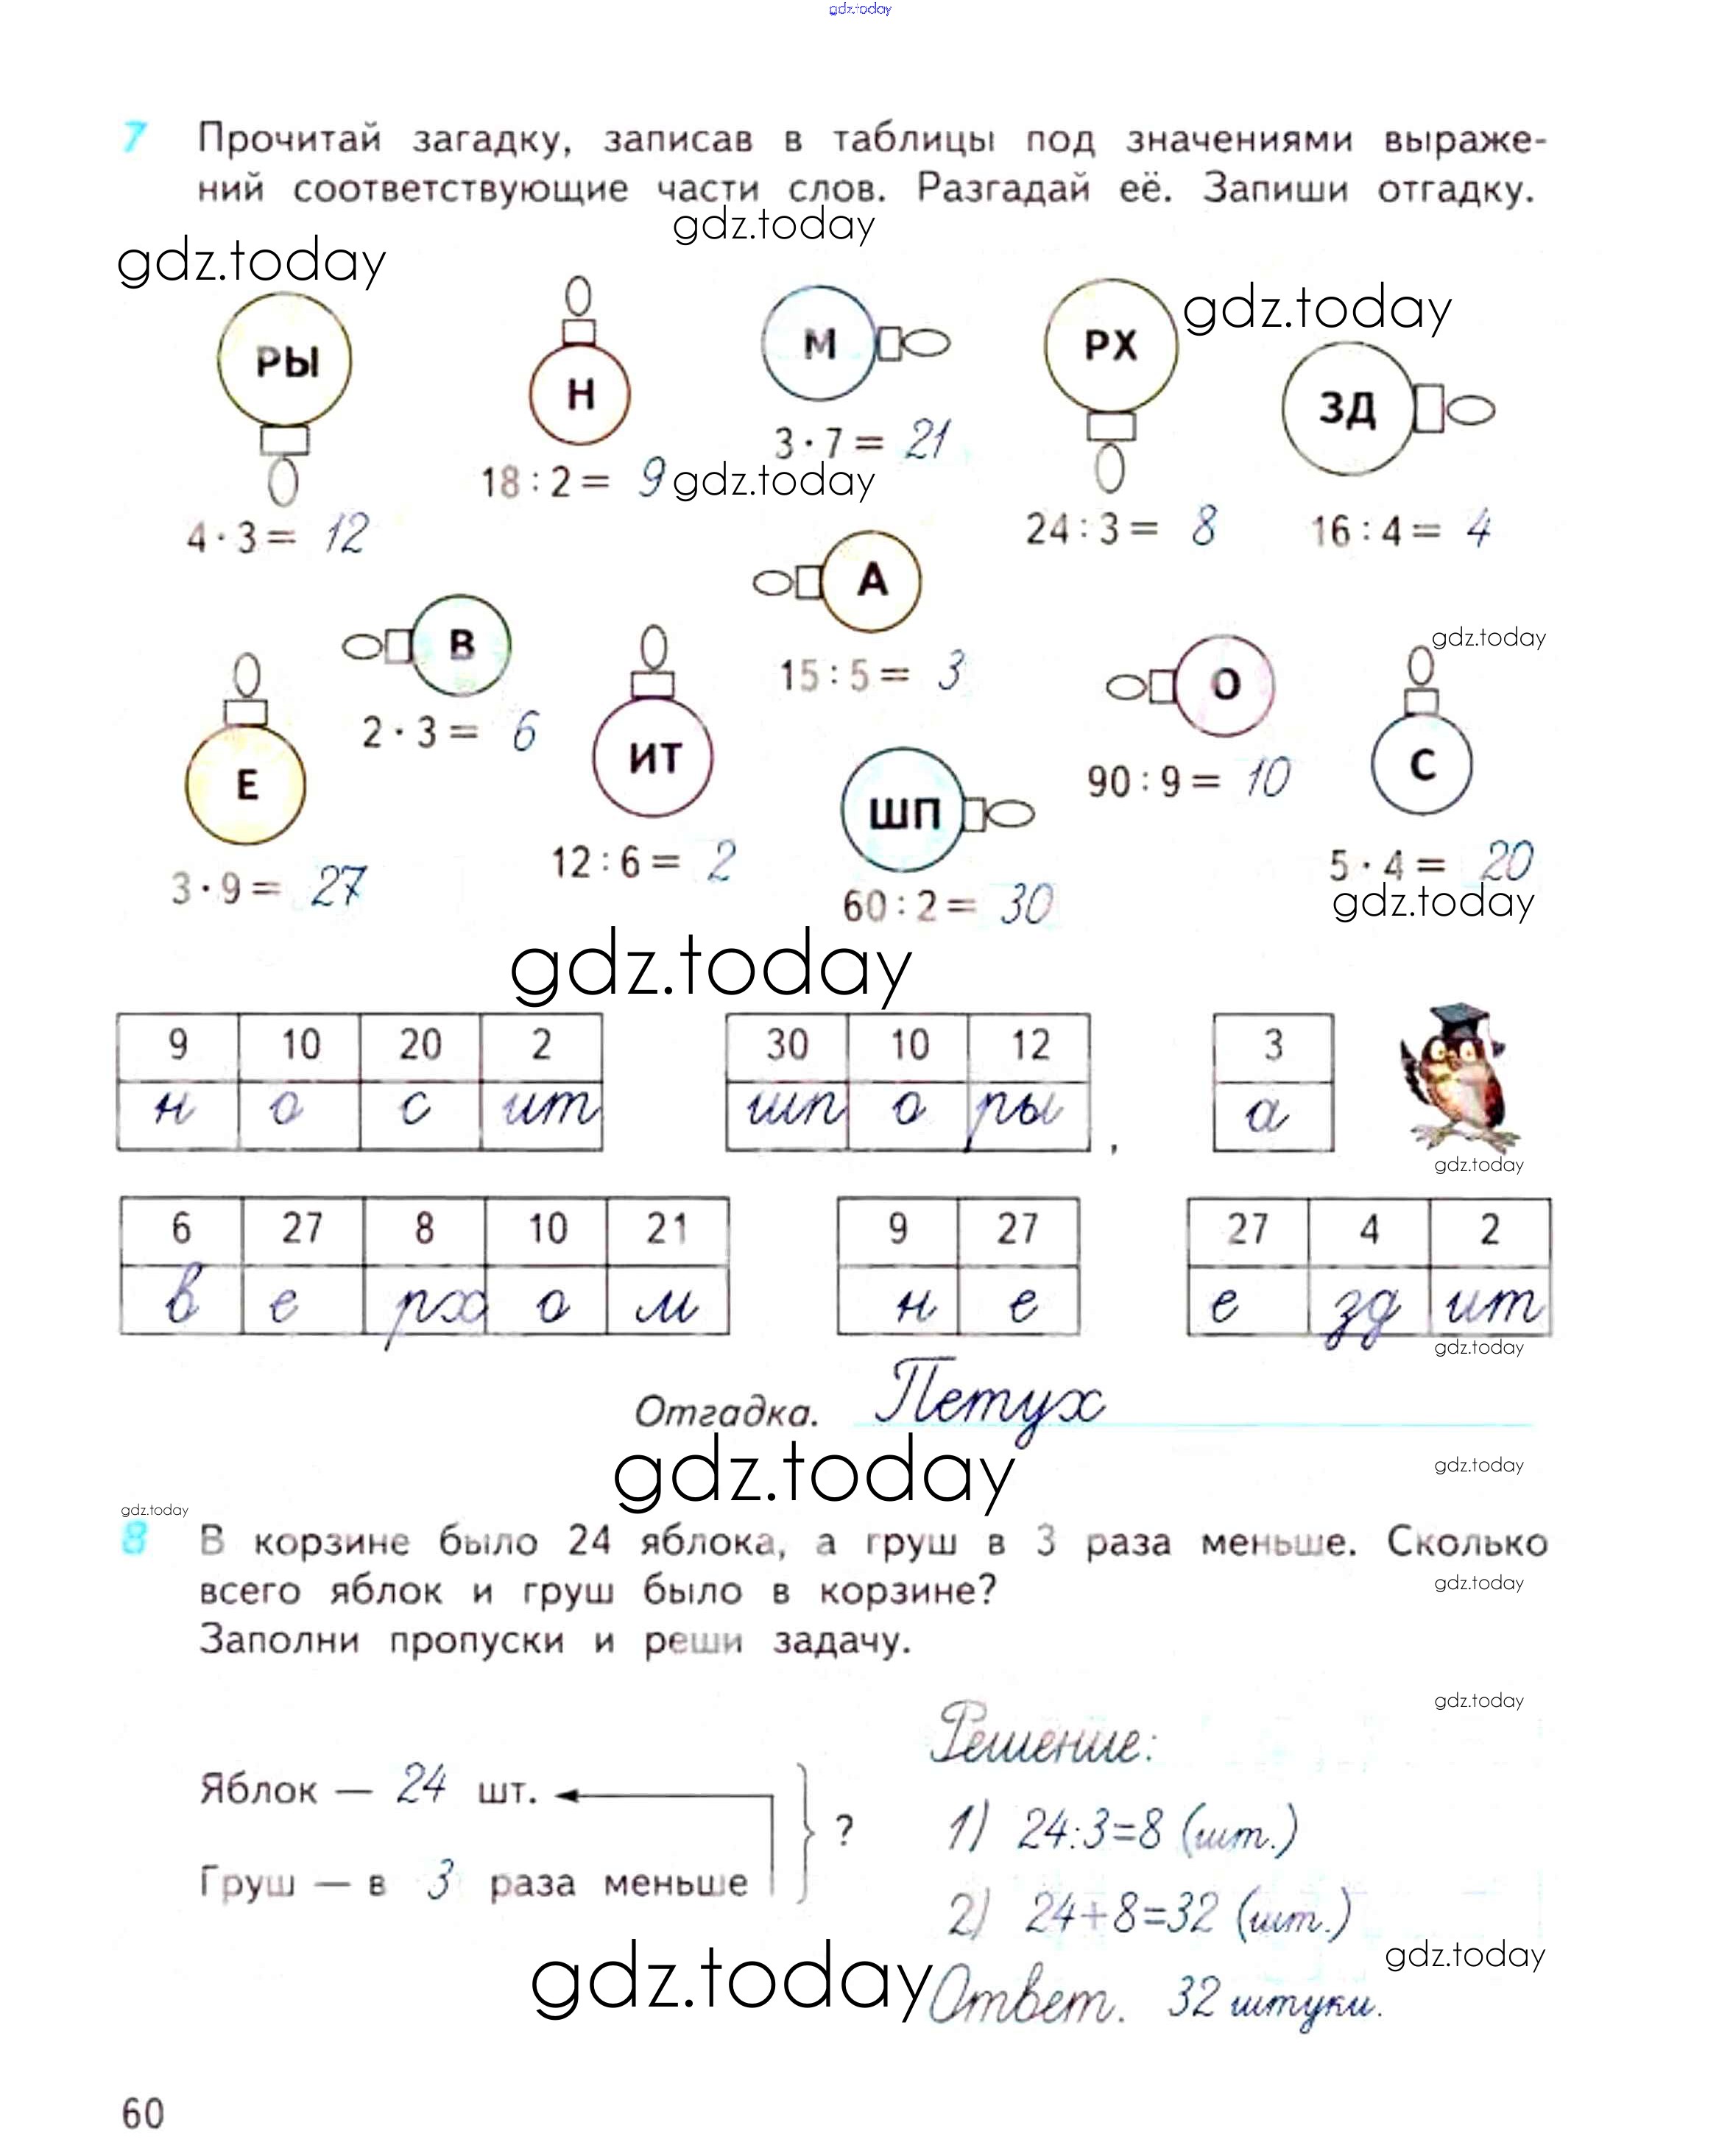 gdz.today
7 Прочитай загадку, записав в таблицы под значениями выраже-
ний соответствующие части слов. Разгадай её. Запиши отгадку.
gdz.today
gdz.today
gdz.today
РЫ
Н
М
РХ
ЗД
4 · 3 = 12
18 : 2 = 9
3 · 7 = 21
24 : 3 = 8
16 : 4 = 4
gdz.today
Е
В
ИТ
А
ШП
О
С
gdz.today
3 · 9 = 27
2 · 3 = 6
12 : 6 = 2
15 : 5 = 3
60 : 2 = 30
90 : 9 = 10
5 · 4 = 20
gdz.today
gdz.today
9 10 20 2
н о с ит
30 10 12
шп о ры ,
3
а
gdz.today
6 27 8 10 21
в е рх о м
9 27
н е
27 4 2
е зд ит
gdz.today
Отгадка. Петух
gdz.today
gdz.today
gdz.today
8 В корзине было 24 яблока, а груш в 3 раза меньше. Сколько
всего яблок и груш было в корзине?
gdz.today
Заполни пропуски и реши задачу.
gdz.today
Яблок — 24 шт.
Груш — в 3 раза меньше
?
Решение:
1) 24:3=8 (шт.)
2) 24+8=32 (шт.)
gdz.today
gdz.today
Ответ. 32 штуки.
60